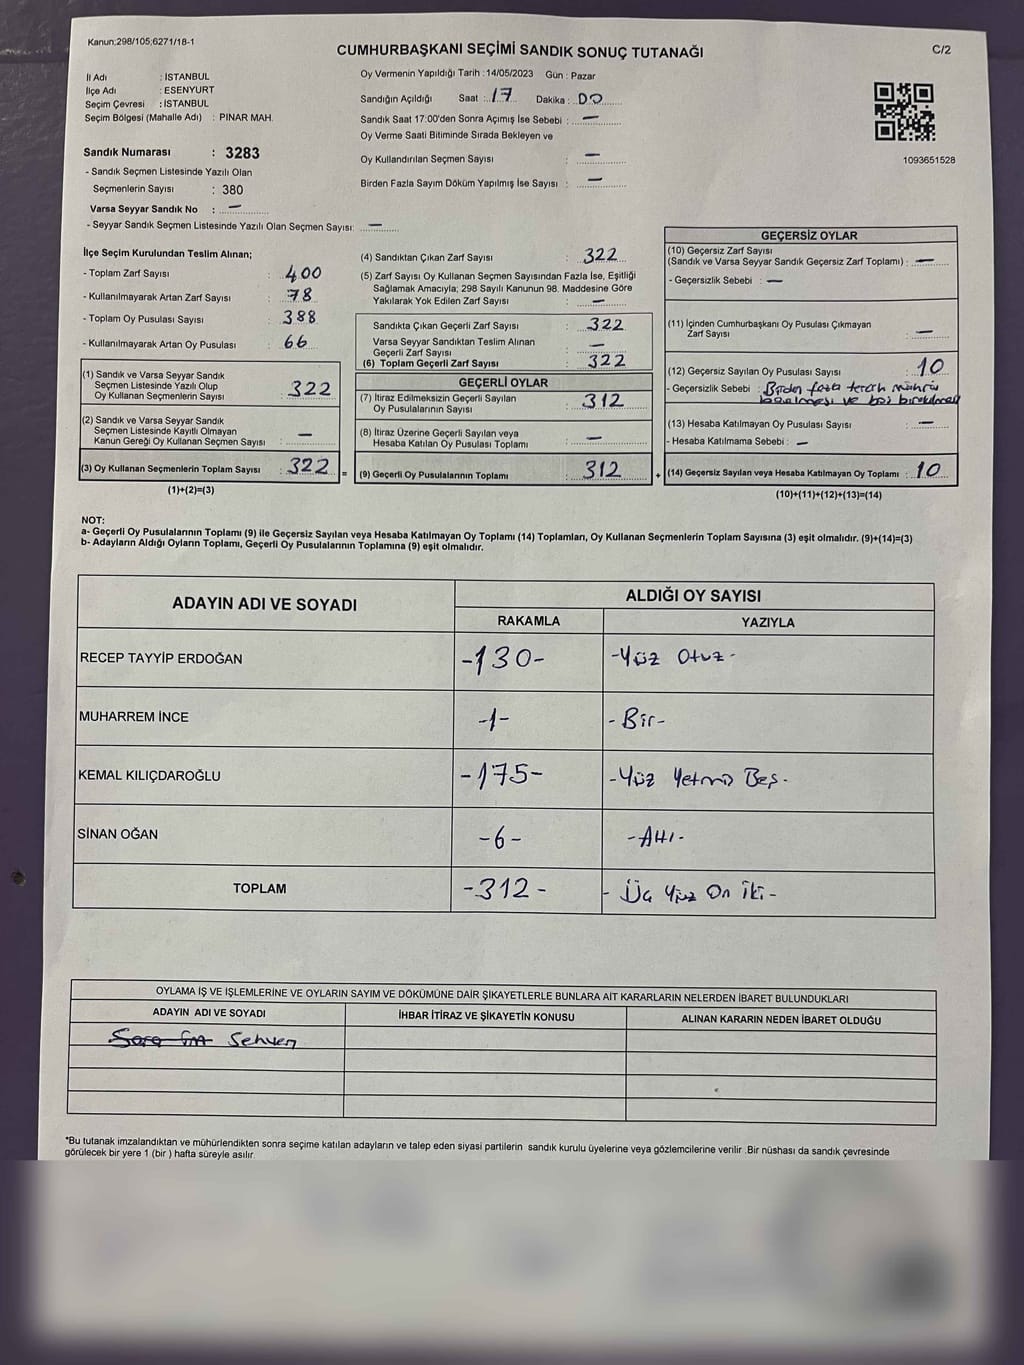 Kanun;298/105;6271/18-1
CUMHURBAŞKANI SEÇİMİ SANDIK SONUÇ TUTANAĞI
C/2
İl Adı : İSTANBUL
İlçe Adı : ESENYURT
Seçim Çevresi : İSTANBUL
Seçim Bölgesi (Mahalle Adı) : PINAR MAH.
Sandık Numarası : 3283
- Sandık Seçmen Listesinde Yazılı Olan
Seçmenlerin Sayısı : 380
Varsa Seyyar Sandık No : —
- Seyyar Sandık Seçmen Listesinde Yazılı Olan Seçmen Sayısı: —
Oy Vermenin Yapıldığı Tarih :14/05/2023 Gün : Pazar
Sandığın Açıldığı Saat : 17 Dakika : 00
Sandık Saat 17:00'den Sonra Açımış İse Sebebi : —
Oy Verme Saati Bitiminde Sırada Bekleyen ve
Oy Kullandırılan Seçmen Sayısı : —
Birden Fazla Sayım Döküm Yapılmış İse Sayısı : —
1093651528
İlçe Seçim Kurulundan Teslim Alınan;
- Toplam Zarf Sayısı : 400
- Kullanılmayarak Artan Zarf Sayısı : 78
- Toplam Oy Pusulası Sayısı : 388
- Kullanılmayarak Artan Oy Pusulası : 66
(1) Sandık ve Varsa Seyyar Sandık
Seçmen Listesinde Yazılı Olup
Oy Kullanan Seçmenlerin Sayısı : 322
(2) Sandık ve Varsa Seyyar Sandık
Seçmen Listesinde Kayıtlı Olmayan
Kanun Gereği Oy Kullanan Seçmen Sayısı : —
(3) Oy Kullanan Seçmenlerin Toplam Sayısı : 322 =
(1)+(2)=(3)
(4) Sandıktan Çıkan Zarf Sayısı : 322
(5) Zarf Sayısı Oy Kullanan Seçmen Sayısından Fazla İse, Eşitliği
Sağlamak Amacıyla; 298 Sayılı Kanunun 98. Maddesine Göre
Yakılarak Yok Edilen Zarf Sayısı : —
Sandıkta Çıkan Geçerli Zarf Sayısı : 322
Varsa Seyyar Sandıktan Teslim Alınan
Geçerli Zarf Sayısı : —
(6) Toplam Geçerli Zarf Sayısı : 322
GEÇERLİ OYLAR
(7) İtiraz Edilmeksizin Geçerli Sayılan
Oy Pusulalarının Sayısı : 312
(8) İtiraz Üzerine Geçerli Sayılan veya
Hesaba Katılan Oy Pusulası Toplamı : —
(9) Geçerli Oy Pusulalarının Toplamı : 312 +
GEÇERSİZ OYLAR
(10) Geçersiz Zarf Sayısı
(Sandık ve Varsa Seyyar Sandık Geçersiz Zarf Toplamı) : —
- Geçersizlik Sebebi : —
(11) İçinden Cumhurbaşkanı Oy Pusulası Çıkmayan
Zarf Sayısı : —
(12) Geçersiz Sayılan Oy Pusulası Sayısı : 10
- Geçersizlik Sebebi : Birden fazla tercih mührü
basılması ve boş bırakılması
(13) Hesaba Katılmayan Oy Pusulası Sayısı : —
- Hesaba Katılmama Sebebi : —
(14) Geçersiz Sayılan veya Hesaba Katılmayan Oy Toplamı : 10
(10)+(11)+(12)+(13)=(14)
NOT:
a- Geçerli Oy Pusulalarının Toplamı (9) ile Geçersiz Sayılan veya Hesaba Katılmayan Oy Toplamı (14) Toplamları, Oy Kullanan Seçmenlerin Toplam Sayısına (3) eşit olmalıdır. (9)+(14)=(3)
b- Adayların Aldığı Oyların Toplamı, Geçerli Oy Pusulalarının Toplamına (9) eşit olmalıdır.
ADAYIN ADI VE SOYADI
ALDIĞI OY SAYISI
RAKAMLA YAZIYLA
RECEP TAYYİP ERDOĞAN -130- -Yüz Otuz-
MUHARREM İNCE -1- -Bir-
KEMAL KILIÇDAROĞLU -175- -Yüz Yetmiş Beş-
SİNAN OĞAN -6- -Altı-
TOPLAM -312- - Üç Yüz On İki -
OYLAMA İŞ VE İŞLEMLERİNE VE OYLARIN SAYIM VE DÖKÜMÜNE DAİR ŞİKAYETLERLE BUNLARA AİT KARARLARIN NELERDEN İBARET BULUNDUKLARI
ADAYIN ADI VE SOYADI İHBAR İTİRAZ VE ŞİKAYETİN KONUSU ALINAN KARARIN NEDEN İBARET OLDUĞU
Sehven
*Bu tutanak imzalandıktan ve mühürlendikten sonra seçime katılan adayların ve talep eden siyasi partilerin sandık kurulu üyelerine veya gözlemcilerine verilir .Bir nüshası da sandık çevresinde
görülecek bir yere 1 (bir ) hafta süreyle asılır.